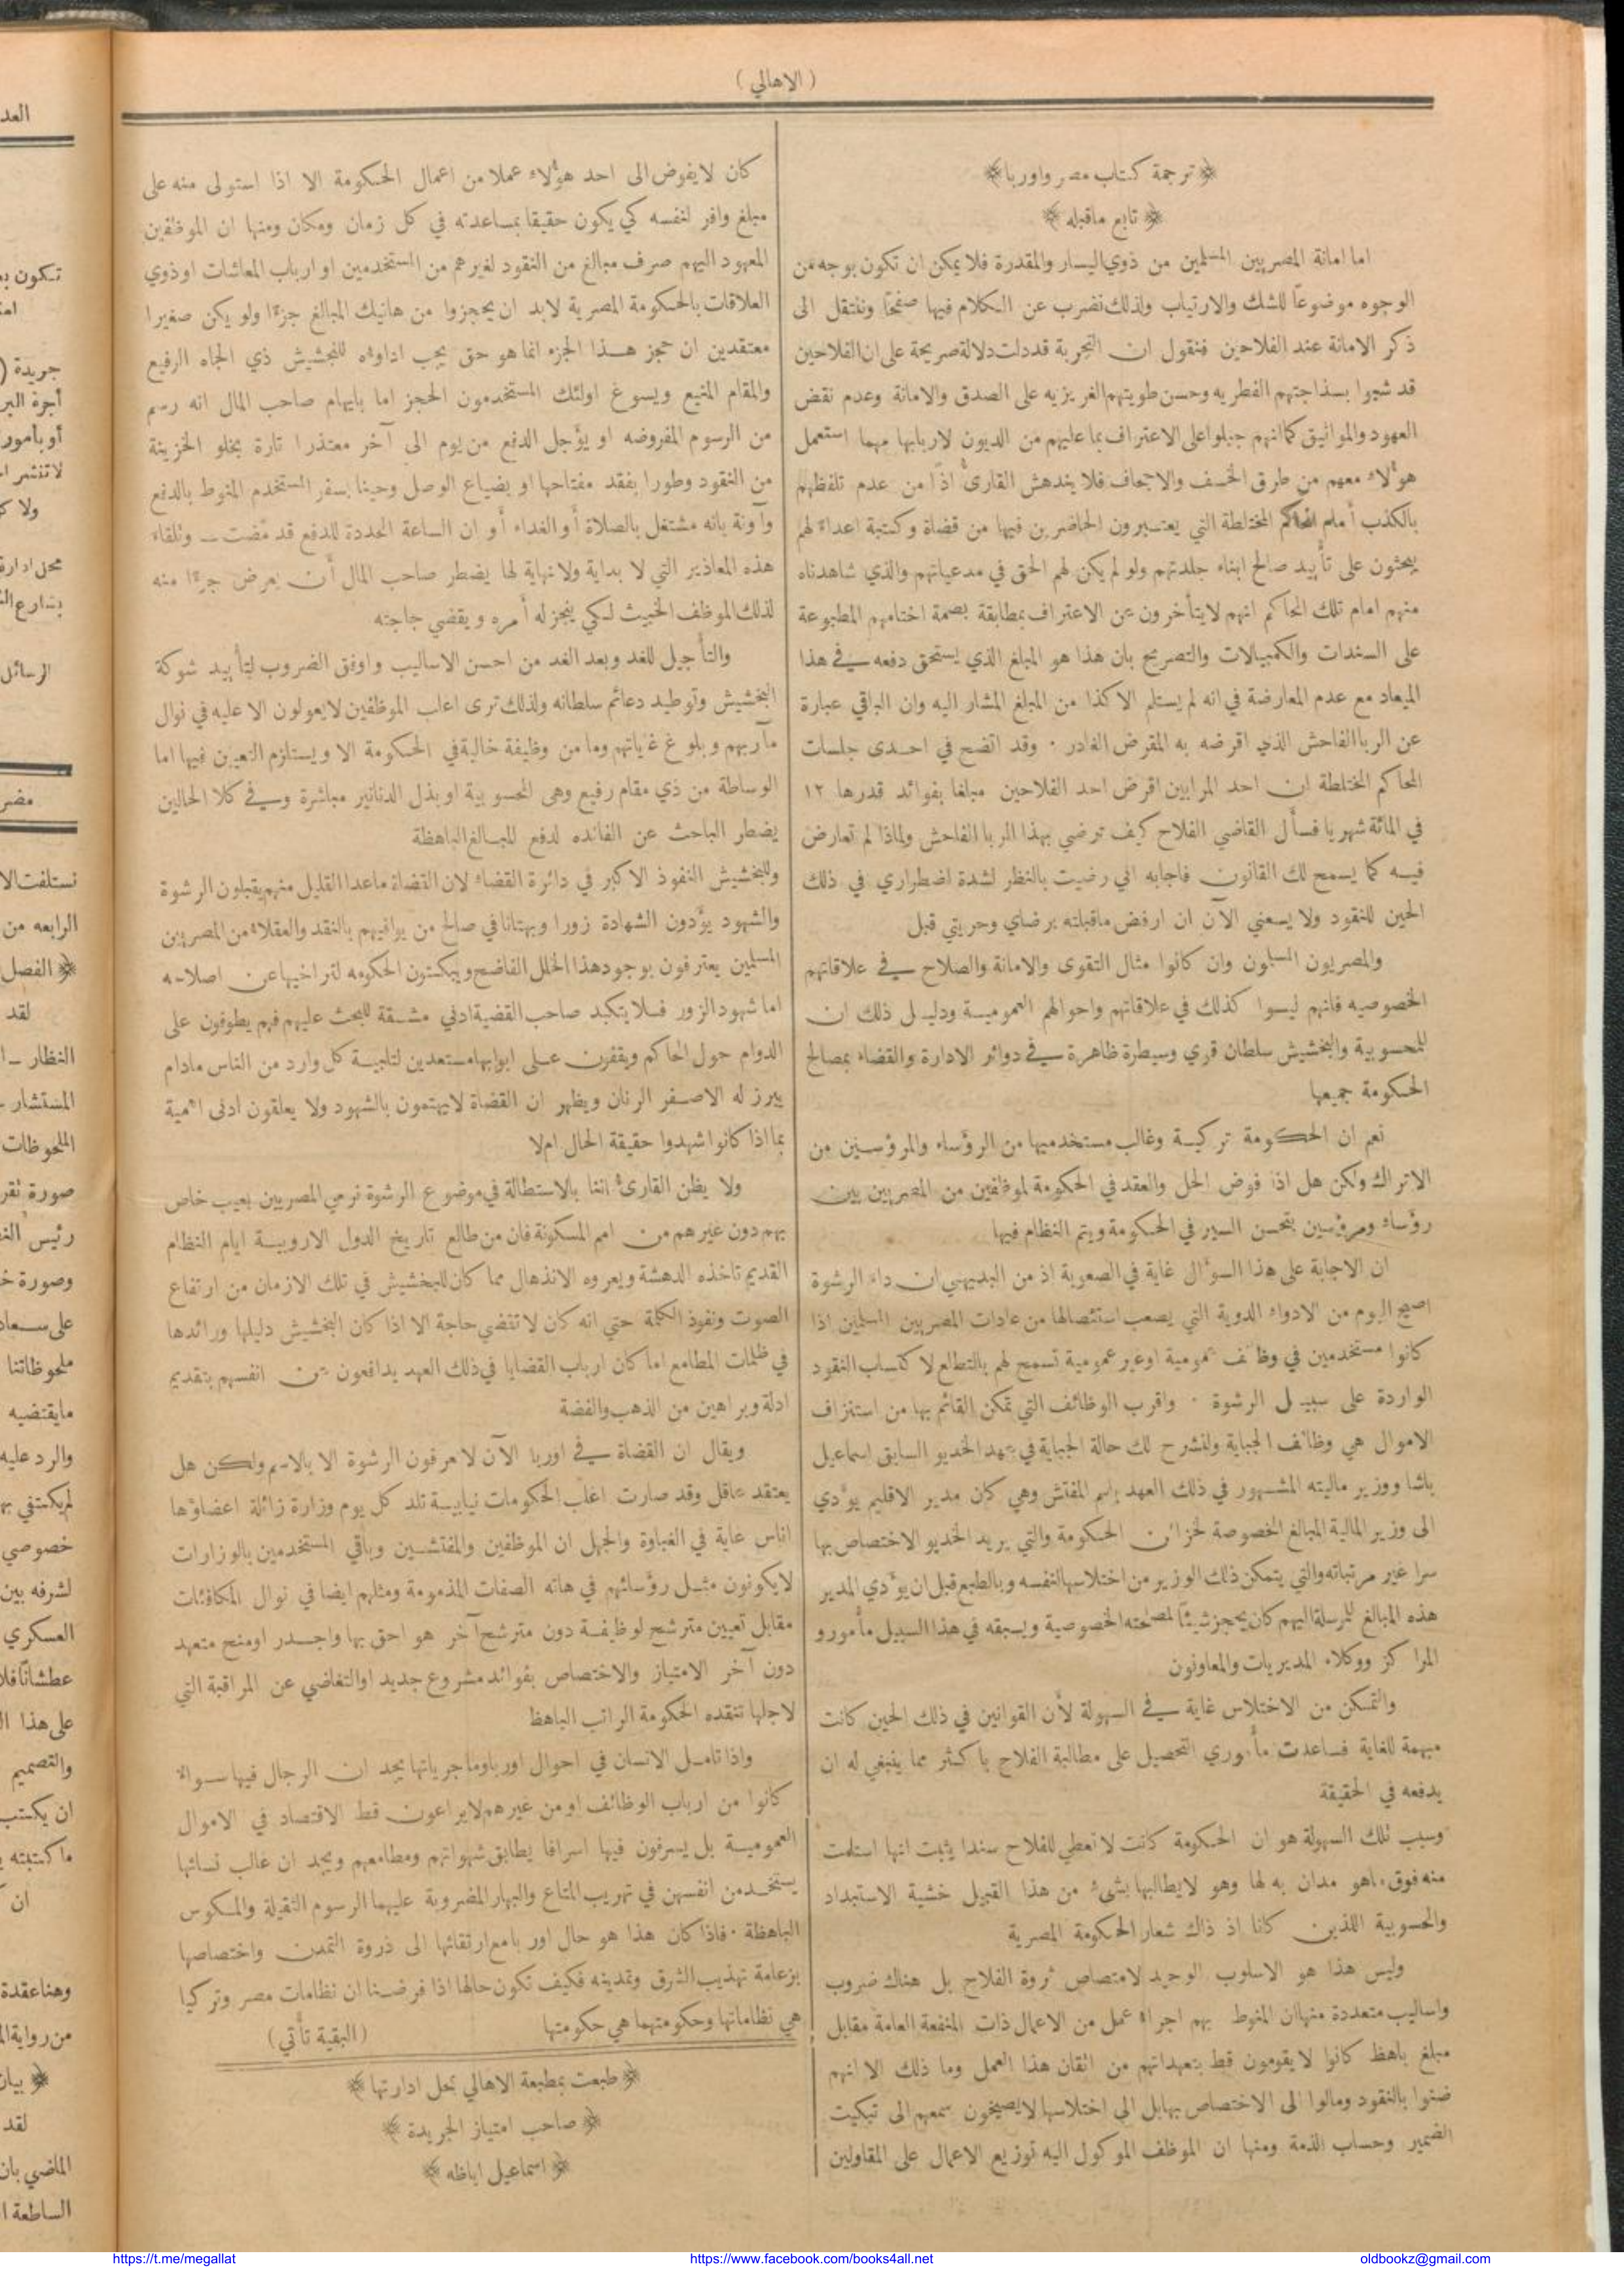 ( الاهالي )
﴿ ترجمة كتاب مصر واوربا ﴾
﴿ تابع ماقبله ﴾
اما امانة المصريين المسلمين من ذوي اليسار والمقدرة فلا يمكن ان تكون بوجه من
الوجوه موضوعاً للشك والارتياب ولذلك نضرب عن الكلام فيها صفحًا وننتقل الى
ذكر الامانة عند الفلاحين فنقول ان التجربة قد دلت دلالة صريحة على ان الفلاحين
قد شبوا بسذاجتهم الفطريه وحسن طويتهم الغريزيه على الصدق والامانة وعدم نقض
العهود والمواثيق كما انهم جبلوا على الاعتراف بما عليهم من الديون لاربابها مهما استعمل
هؤلاء معهم من طرق الخسف والاجحاف فلا يندهش القارئ اذًا من عدم تلفظهم
بالكذب أمام المحاكم المختلطة التي يعتبرون الحاضرين فيها من قضاة وكتبة اعداء لهم
يبحثون على تأييد صالح ابناء جلدتهم ولو لم يكن لهم الحق في مدعياتهم والذي شاهدناه
منهم امام تلك المحاكم انهم لايتأخرون عن الاعتراف بمطابقة بصمة اختامهم المطبوعة
على السندات والكمبيالات والتصريح بان هذا هو المبلغ الذي يستحق دفعه في هذا
الميعاد مع عدم المعارضة في انه لم يستلم الا كذا من المبلغ المشار اليه وان الباقي عبارة
عن الربا الفاحش الذي اقرضه به المقرض الغادر . وقد اتضح في احدى جلسات
المحاكم المختلطة ان احد المرابين اقرض احد الفلاحين مبلغا بفوائد قدرها ١٢
في المائة شهريا فسأل القاضي الفلاح كيف ترضى بهذا الربا الفاحش ولماذا لم تعارض
فيه كما يسمح لك القانون فاجابه اني رضيت بالنظر لشدة اضطراري في ذلك
الحين للنقود ولا يسعني الآن ان ارفض ماقبلته برضاي وحريتي قبل
والمصريون المسلمون وان كانوا مثال التقوى والامانة والصلاح في علاقاتهم
الخصوصيه فانهم ليسوا كذلك في علاقاتهم واحوالهم العمومية ودليل ذلك ان
للمحسوبية والبخشيش سلطان قوي وسيطرة ظاهرة في دوائر الادارة والقضاء بمصالح
الحكومة جميعها
نعم ان الحكومة تركية وغالب مستخدميها من الرؤساء والمرؤسين من
الاتراك ولكن هل اذا فوض الحل والعقد في الحكومة لموظفين من المصريين بين
رؤساء ومرؤسين يتحسن السير في الحكومة ويتم النظام فيها
ان الاجابة على هذا السؤال غاية في الصعوبة اذ من البديهي ان داء الرشوة
اصبح اليوم من الادواء الدوية التي يصعب استئصالها من عادات المصريين المسلمين اذا
كانوا مستخدمين في وظائف عمومية اوغير عمومية تسمح لهم بالتطلع لاكتساب النقود
الواردة على سبيل الرشوة . واقرب الوظائف التي تمكن القائم بها من استنزاف
الاموال هي وظائف الجباية ولنشرح لك حالة الجباية في عهد الخديو السابق اسماعيل
باشا ووزير ماليته المشهور في ذلك العهد باسم المفتش وهي كان مدير الاقليم يؤدي
الى وزير المالية المبالغ الخصوصة لخزائن الحكومة والتي يريد الخديو الاختصاص بها
سرا غير مرتباته والتي يتمكن ذلك الوزير من اختلاسها لنفسه وبالطبع قبل ان يؤدي المدير
هذه المبالغ المرسلة اليهم كان يحجز شيئًا لمصلحته الخصوصية ويسبقه في هذا السبيل مأمورو
المراكز ووكلاء المديريات والمعاونون
والتمكن من الاختلاس غاية في السهولة لأن القوانين في ذلك الحين كانت
مبهمة للغاية فساعدت مأموري التحصيل على مطالبة الفلاح باكثر مما ينبغي له ان
يدفعه في الحقيقة
وسبب تلك السهولة هو ان الحكومة كانت لاتعطي للفلاح سندا يثبت انها استلمت
منه فوق ماهو مدان به لها وهو لايطالبها بشيء من هذا القبيل خشية الاستبداد
والمحسوبية اللذين كانا اذ ذاك شعار الحكومة المصرية
وليس هذا هو الاسلوب الوحيد لامتصاص ثروة الفلاح بل هناك ضروب
واساليب متعددة منها ان المنوط بهم اجراء عمل من الاعمال ذات المنفعة العامة مقابل
مبلغ باهظ كانوا لايقومون قط بتعهداتهم من اتقان هذا العمل وما ذلك الا انهم
ضنوا بالنقود ومالوا الى الاختصاص بها بل الى اختلاسها لايصيخون سمعهم الى تبكيت
الضمير وحساب الذمة ومنها ان الموظف الموكول اليه توزيع الاعمال على المقاولين
كان لايفوض الى احد هؤلاء عملا من اعمال الحكومة الا اذا استولى منه على
مبلغ وافر لنفسه كي يكون حقيقا بمساعدته في كل زمان ومكان ومنها ان الموظفين
المعهود اليهم صرف مبالغ من النقود لغيرهم من المستخدمين او ارباب المعاشات اوذوي
العلاقات بالحكومة المصرية لابد ان يحجزوا من هاتيك المبالغ جزءًا ولو يكن صغيرا
معتقدين ان حجز هذا الجزء انما هو حق يجب اداوئه للبخشيش ذي الجاه الرفيع
والمقام المنيع ويسوغ اولئك المستخدمون الحجز اما بايهام صاحب المال انه رسم
من الرسوم المفروضه او يؤجل الدفع من يوم الى آخر معتذرا تارة بخلو الخزينة
من النقود وطورا بفقد مفتاحها او بضياع الوصل وحينا بسفر المستخدم المنوط بالدفع
وآونة بانه مشتغل بالصلاة أو الغداء أو ان الساعة المحددة للدفع قد مضت – وتلقاء
هذه المعاذير التي لا بداية ولانهاية لها يضطر صاحب المال أن يعرض جزءا منه
لذلك الموظف الخبيث لكي ينجز له أمره ويقضي حاجته
والتأجيل للغد وبعد الغد من احسن الاساليب واوفق الضروب لتأييد شوكة
البخشيش وتوطيد دعائم سلطانه ولذلك ترى اغلب الموظفين لايعولون الا عليه في نوال
مآربهم وبلوغ غاياتهم وما من وظيفة خالية في الحكومة الا ويستلزم التعيين فيها اما
الوساطة من ذي مقام رفيع وهي المحسوبية او بذل الدنانير مباشرة وفي كلا الحالين
يضطر الباحث عن الفائده لدفع المبالغ الباهظة
وللبخشيش النفوذ الاكبر في دائرة القضاء لان القضاة ماعدا القليل منهم يقبلون الرشوة
والشهود يؤدون الشهادة زورا وبهتانا في صالح من يوافيهم بالنقد والعقلاء من المصريين
المسلمين يعترفون بوجود هذا الخلل الفاضح ويبكتون الحكومه لتراخيها عن اصلاحه
اما شهود الزور فلا يتكبد صاحب القضية ادنى مشقة للبحث عليهم فهم يطوفون على
الدوام حول المحاكم ويقفون على ابوابها مستعدين لتلبية كل وارد من الناس مادام
يبرز له الاصفر الرنان ويظهر ان القضاة لايهتمون بالشهود ولا يعلقون ادنى اهمية
بما اذا كانوا شهدوا حقيقة الحال ام لا
ولا يظن القارئ اننا بالاستطالة في موضوع الرشوة نرمي المصريين بعيب خاص
بهم دون غيرهم من امم المسكونة فان من طالع تاريخ الدول الاروبية ايام النظام
القديم تاخذه الدهشة ويعروه الانذهال مما كان للبخشيش في تلك الازمان من ارتفاع
الصوت ونفوذ الكلمة حتى انه كان لاتقضى حاجة الا اذا كان البخشيش دليلها ورائدها
في ظلمات المطامع اما كان ارباب القضايا في ذلك العهد يدافعون عن انفسهم بتقديم
ادلة وبراهين من الذهب والفضة
ويقال ان القضاة في اوربا الآن لايعرفون الرشوة الا بالاسم ولكن هل
يعتقد عاقل وقد صارت اغلب الحكومات نيابية تلد كل يوم وزارة زائلة اعضاؤها
اناس غاية في الغباوة والجهل ان الموظفين والمفتشين وباقي المستخدمين بالوزارات
لايكونون مثل رؤسائهم في هاته الصفات المذمومة ومثلهم ايضا في نوال المكافئات
مقابل تعيين مترشح لوظيفة دون مترشح آخر هو احق بها واجدر اومنح متعهد
دون آخر الامتياز والاختصاص بفوائد مشروع جديد اوالتغاضي عن المراقبة التي
لاجلها تنقده الحكومة الراتب الباهظ
واذا تامل الانسان في احوال اوربا وماجرياتها يجد ان الرجال فيها سواءً
كانوا من ارباب الوظائف او من غيرهم لايراعون قط الاقتصاد في الاموال
العمومية بل يسرفون فيها اسرافا يطابق شهواتهم ومطامعهم ويجد ان غالب نسائها
يستخدمن انفسهن في تهريب المتاع والبهار المضروبة عليهما الرسوم الثقيلة والمكوس
الباهظة . فاذا كان هذا هو حال اوربا مع ارتقائها الى ذروة التمدن واختصاصها
بزعامة تهذيب الشرق وتمدينه فكيف تكون حالها اذا فرضنا ان نظامات مصر وتركيا
هي نظاماتها وحكومتهما هي حكومتها (البقية تأتي)
﴿ طبعت بمطبعة الاهالي بمحل ادارتها ﴾
﴿ صاحب امتياز الجريدة ﴾
﴿ اسماعيل اباظه ﴾
العد
تكون بد
جريدة (
أجرة البر
أو بأمور
لاتنشر ا
محل ادارة
الرسائل
مصر
نستلفت الا
الرابعه من
﴿ الفصل
لقد
النظار – ا
المستشار
الملحوظات
صورة تقر
رئيس الن
وصورة خ
على سعاد
ملحوظاتنا
مايقتضيه
والرد عليه
لم يكتفي به
خصوصي
لشرفه بين
العسكري
عطشانًا فلا
على هذا ال
والتصميم
ان يكتب
ماكتبته
ان
وهنا عقدة
من رواية ال
﴿ بيان
لقد
الماضي بان
الساطعة ا
https://t.me/megallat
https://www.facebook.com/books4all.net
oldbookz@gmail.com